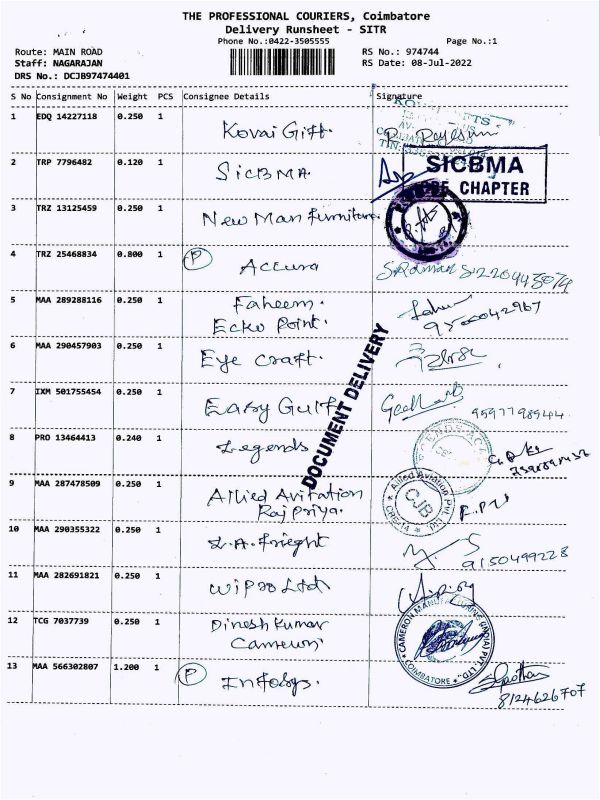 THE PROFESSIONAL COURIERS, Coimbatore
Delivery Runsheet - SITR
Phone No.:0422-3505555 Page No.:1
Route: MAIN ROAD RS No.: 974744
Staff: NAGARAJAN RS Date: 08-Jul-2022
DRS No.: DCJB97474401
S No Consignment No Weight PCS Consignee Details Signature
1 EDQ 14227118 0.250 1 Kovai Gift.
2 TRP 7796482 0.120 1 SICBMA.
SICBMA
CHAPTER
3 TRZ 13125459 0.250 1 New Man Furniture
4 TRZ 25468834 0.800 1 P Accura
5 MAA 289288116 0.250 1 Faheem.
Ecko Point.
6 MAA 290457903 0.250 1 Eye craft.
DOCUMENT DELIVERY
7 IXM 501755454 1 0.250 1 Easy Gulf
8 PRO 13464413 0.240 1 Legends
9 MAA 287478509 0.250 1 Allied Avitation
Rajpriya.
Allied Aviation Pvt. Ltd.
CJB
10 MAA 290355322 0.250 1 L.A. Frieght
9150499228
11 MAA 282691821 0.250 1 Wipro Ltd
12 TCG 7037739 0.250 1 Dinesh Kumar
Cameron
CAMERON MANUFACTURING (INDIA) PVT. LTD.
COIMBATORE
13 MAA 566302807 1.200 1 P Infosys.
8124626707